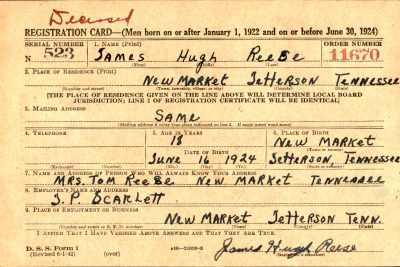 Deceased
REGISTRATION CARD—(Men born on or after January 1, 1922 and on or before June 30, 1924)
SERIAL NUMBER 1. NAME (Print) ORDER NUMBER
N 523 JAMES Hugh ReeSe 11670
(First) (Middle) (Last)
2. PLACE OF RESIDENCE (Print)
New MARKET JeffERSON TENNESSEE
(Number and street) (Town, township, village, or city) (County) (State)
[THE PLACE OF RESIDENCE GIVEN ON THE LINE ABOVE WILL DETERMINE LOCAL BOARD
JURISDICTION; LINE 2 OF REGISTRATION CERTIFICATE WILL BE IDENTICAL]
3. MAILING ADDRESS
SAME
[Mailing address if other than place indicated on line 2. If same insert word same]
4. TELEPHONE 5. AGE IN YEARS 6. PLACE OF BIRTH
18 New MARKET
DATE OF BIRTH (Town or county)
June 16 1924 JeffERSON, TENNESSEE
(Exchange) (Number) (Mo.) (Day) (Yr.) (State or country)
7. NAME AND ADDRESS OF PERSON WHO WILL ALWAYS KNOW YOUR ADDRESS
MRS. TOM ReeSe New MARKET TENNESSEE
8. EMPLOYER'S NAME AND ADDRESS
J. P. SCARLETT
9. PLACE OF EMPLOYMENT OR BUSINESS
New MARKET JeffERSON TENN.
(Number and street or R. F. D. number) (Town) (County) (State)
I AFFIRM THAT I HAVE VERIFIED ABOVE ANSWERS AND THAT THEY ARE TRUE.
D. S. S. Form 1
(Revised 6-1-42) (over) James Hugh Reese